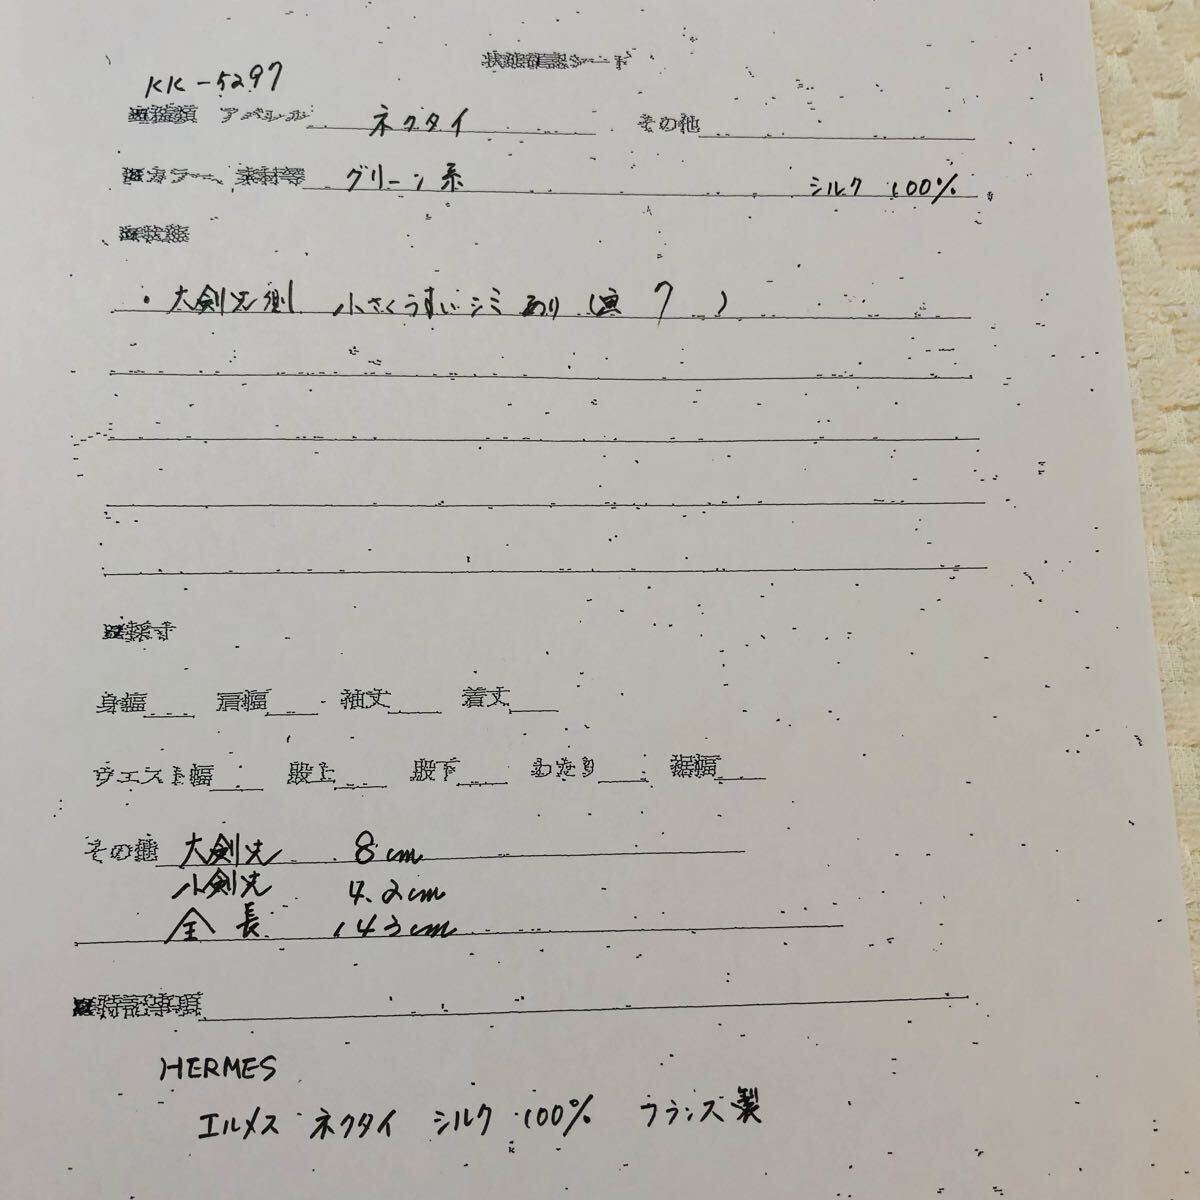 状態確認シート
KK-5297
■種類 アパレル ネクタイ その他
■カラー、素材等 グリーン系 シルク 100%
■状態
・大剣先側 小さくうすいシミあり(画 7 )
■採寸
身幅 肩幅 袖丈 着丈
ウエスト幅 股上 股下 わたり 裾幅
その他 大剣先 8cm
小剣先 4.2cm
全長 143cm
■特記事項
HERMES
エルメス ネクタイ シルク 100% フランス製